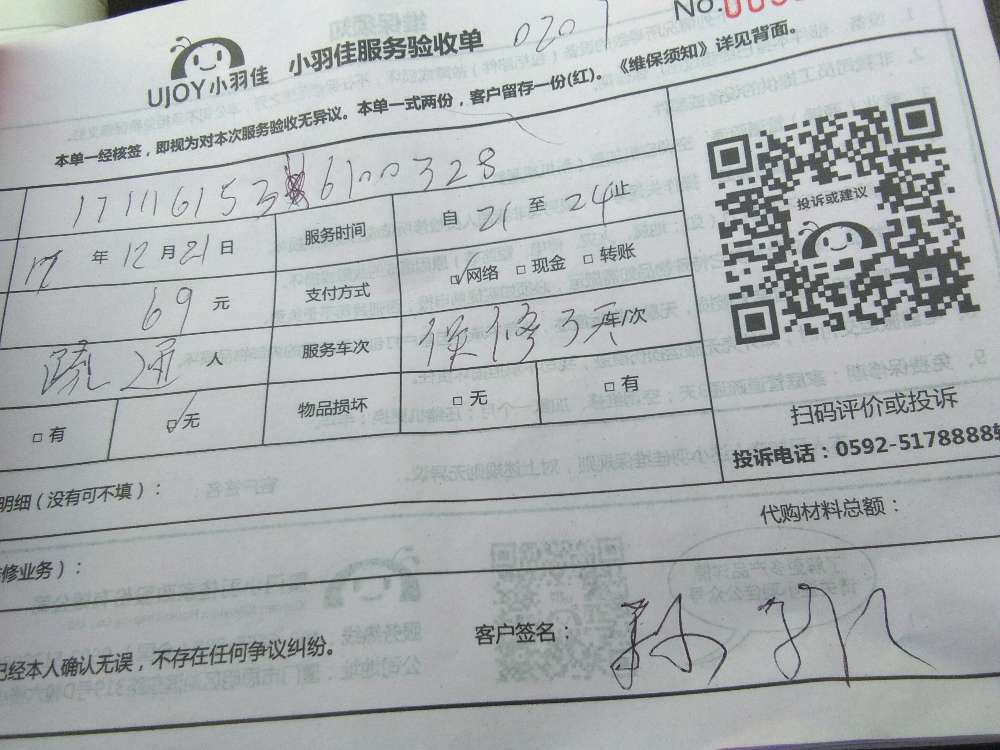 No.00
UJOY小羽佳 小羽佳服务验收单 0207
本单一经核签，即视为对本次服务验收无异议。本单一式两份，客户留存一份(红)。《维保须知》详见背面。
171116153 6100328
17 年 12 月 21 日 服务时间 自 21 至 24 止
69 元 支付方式 ☑网络 □现金 □转账
疏通 人 服务车次 保修3天 车/次
□有 ☑无 物品损坏 □无 □有
投诉或建议
扫码评价或投诉
投诉电话：0592-5178888转
明细（没有可不填）：
代购材料总额：
修业务）：
已经本人确认无误，不存在任何争议纠纷。 客户签名：